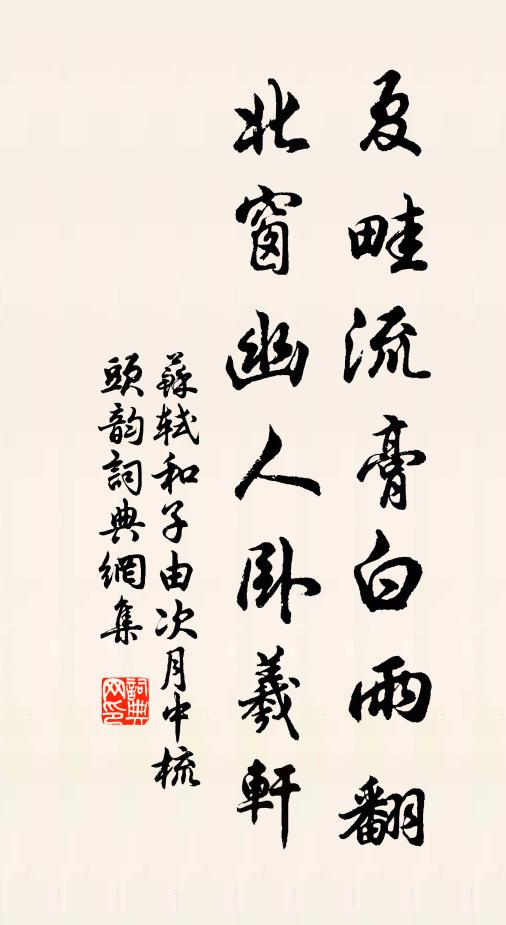 夏畦流膏白雨翻
北窗幽人卧羲軒
蘇軾和子由次月中梳
頭韵詞典網集
詞典
网印